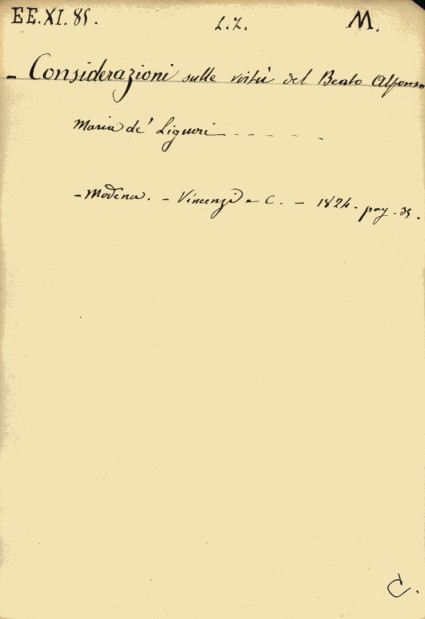 EE.XI.85. L.Z. M.
- Considerazioni sulle virtù del Beato Alfonso
Maria de' Liguori - - - - -
- Modena. - Vincenzi e C. - 1824. pag. 35.
C.